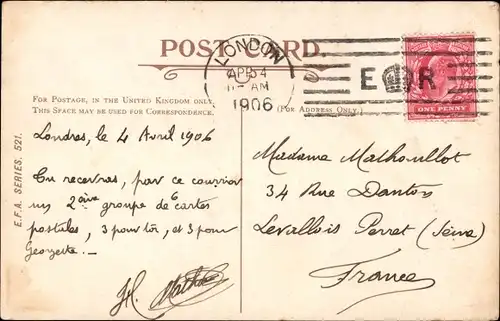 POST CARD.
LONDON
AP 4
11- AM
1906
E R
ONE PENNY
FOR POSTAGE, IN THE UNITED KINGDOM ONLY,
THIS SPACE MAY BE USED FOR CORRESPONDENCE.
(FOR ADDRESS ONLY.)
E.F.A. SERIES. 521.
Londres, le 4 Avril 1906
Tu recevras, par ce courrier
un 2ème groupe de 6 cartes
postales, 3 pour toi, et 3 pour
Georgette.-
H.
Madame Mathoullot
34 Rue Danton
Levallois Perret (Seine)
France